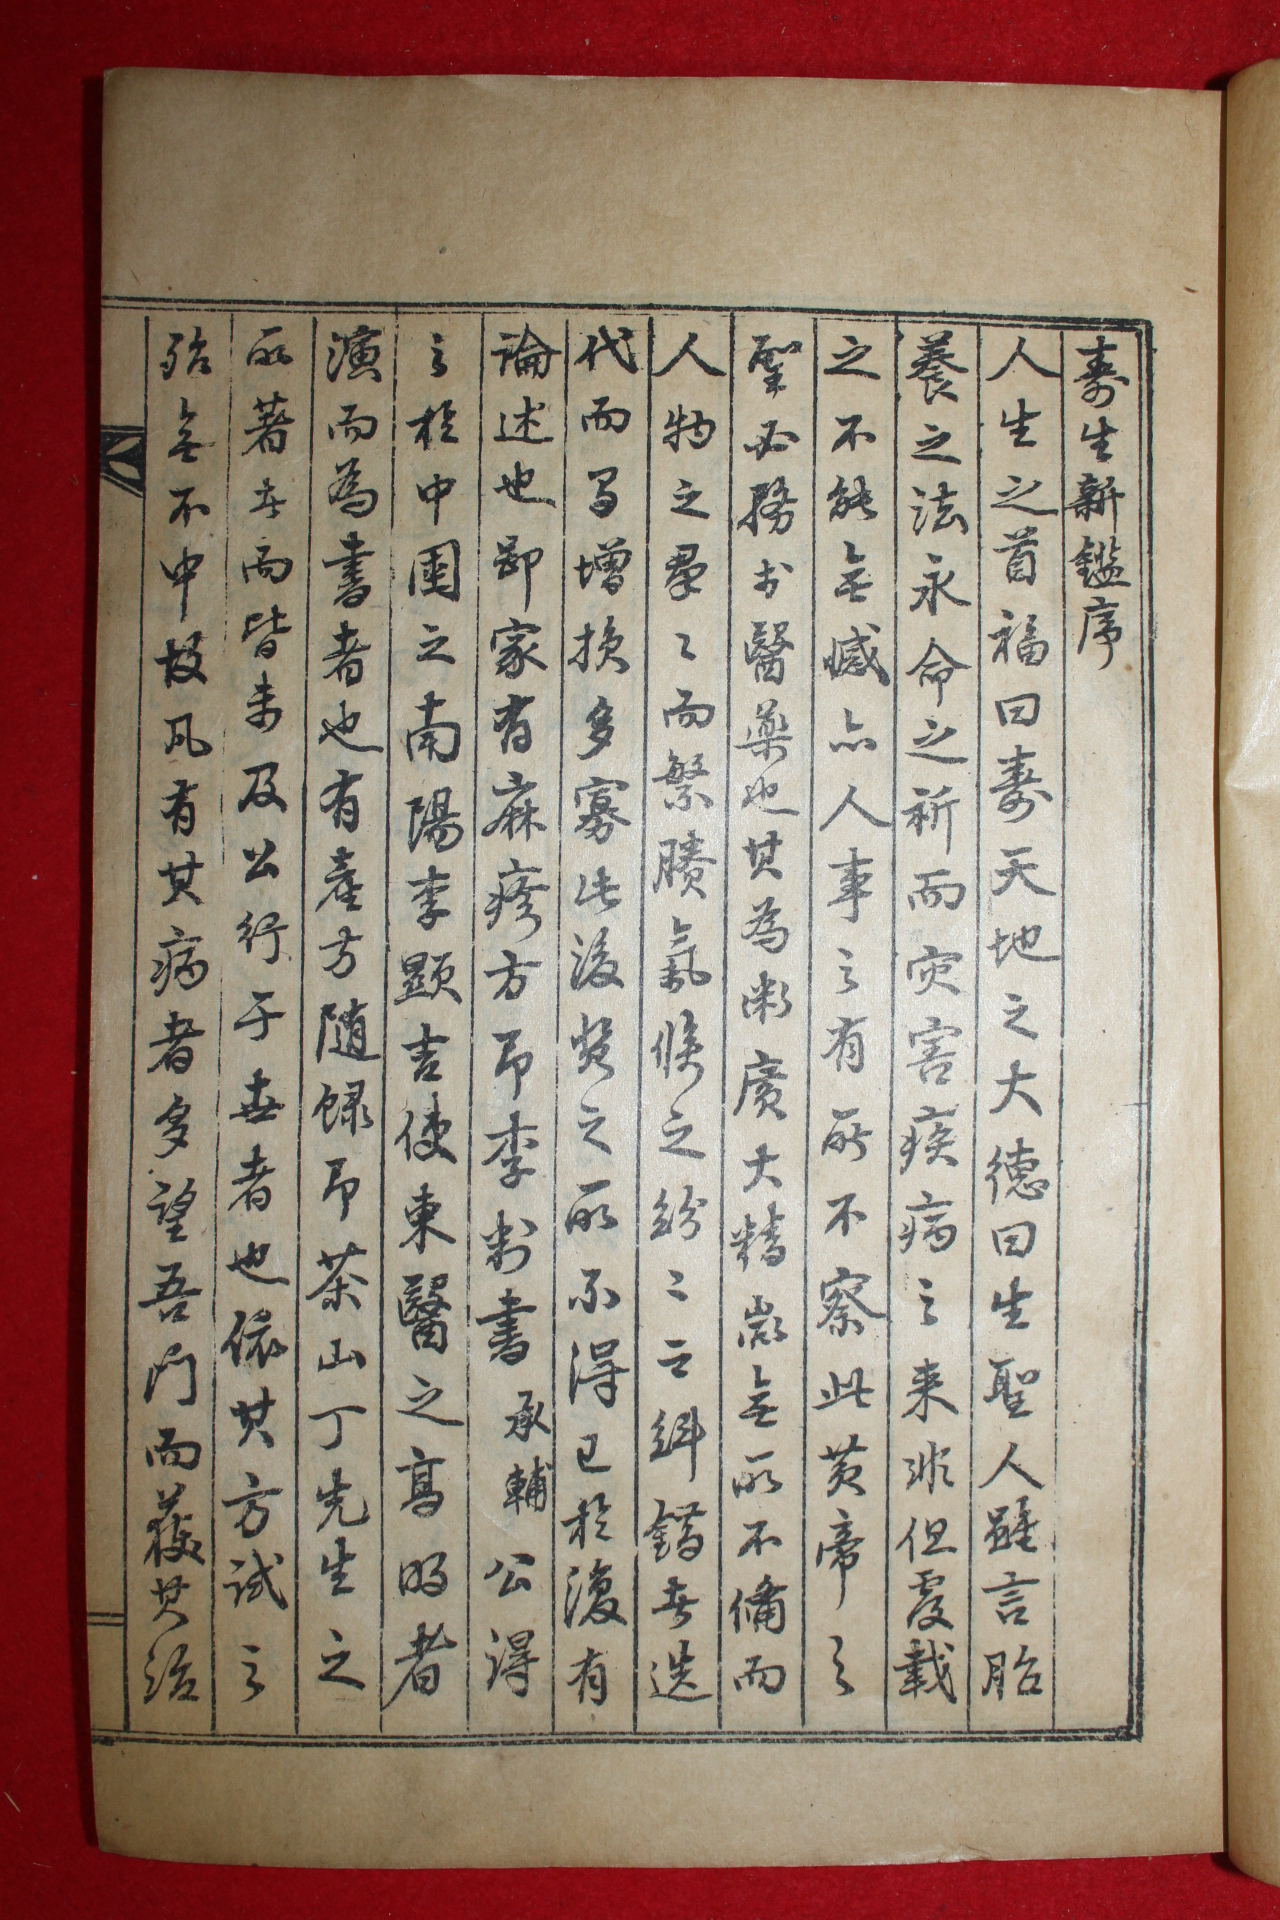 壽生新鑑序
人生之首福曰壽天地之大德曰生聖人雖言胎
養之法永命之祈而灾害疾病之来非但覆載
之不能無憾亦人事之有所不察此黃帝之
聖必務於醫藥也其為術廣大精微無所不備而
人物之羣々而繁賸氣候之紛々之糾錯世迭
代而易增損多寡此後賢之所不得已於復有
論述也鄙家有麻疹方即李判書承輔公得
之於中國之南陽李顯吉使東醫之高明者
演而為書者也有産方隨錄即茶山丁先生之
所著書而皆未及公行于世者也依其方試之
殆無不中故凡有其病者多望吾門而获其治